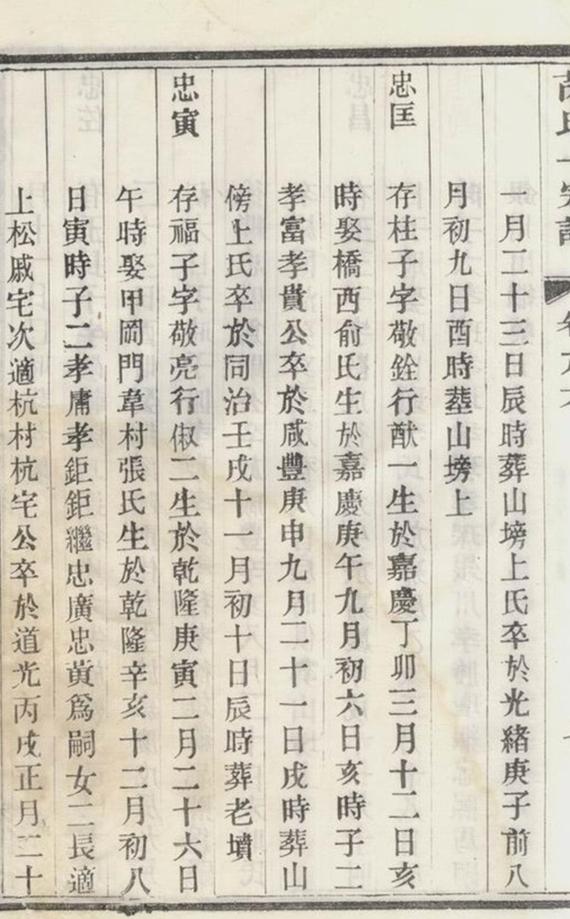 一月二十三日辰時葬山塝上氏卒於光緒庚子前八
月初九日酉時塟山塝上
忠匡　存柱子字敬銓行猷一生於嘉慶丁卯三月十二日亥
時娶橋西俞氏生於嘉慶庚午九月初六日亥時子二
孝富孝貴公卒於咸豐庚申九月二十一日戌時葬山
傍上氏卒於同治壬戌十一月初十日辰時葬老墳
忠寅　存福子字敬亮行俶二生於乾隆庚寅二月二十六日
午時娶甲岡門韋村張氏生於乾隆辛亥十二月初八
日寅時子二孝庸孝鉅鉅繼忠廣忠黄爲嗣女二長適
上松戚宅次適杭村杭宅公卒於道光丙戌正月二十